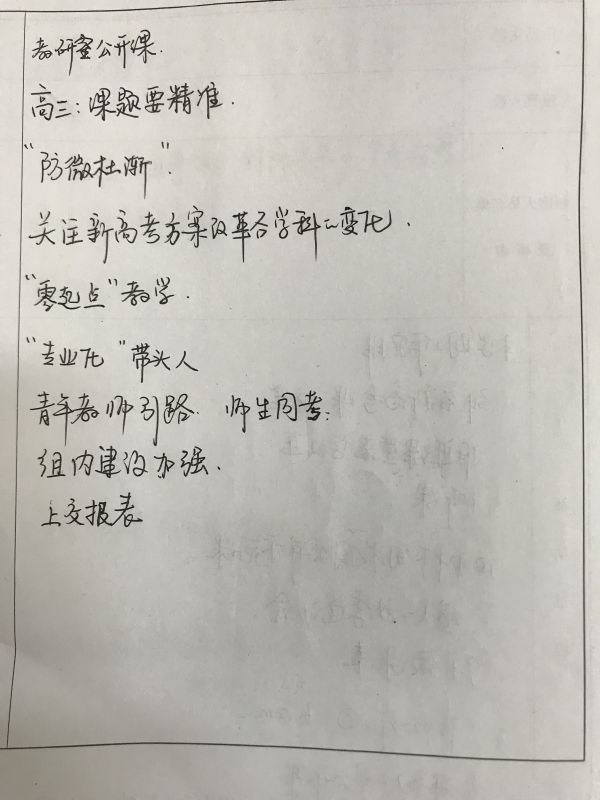 教研室公开课.
高三:课题要精准.
"防微杜渐".
关注新高考方案改革各学科的变化.
"零起点"教学.
"专业化"带头人
青年教师引路. 师生同考;
组内建设加强.
上交报表